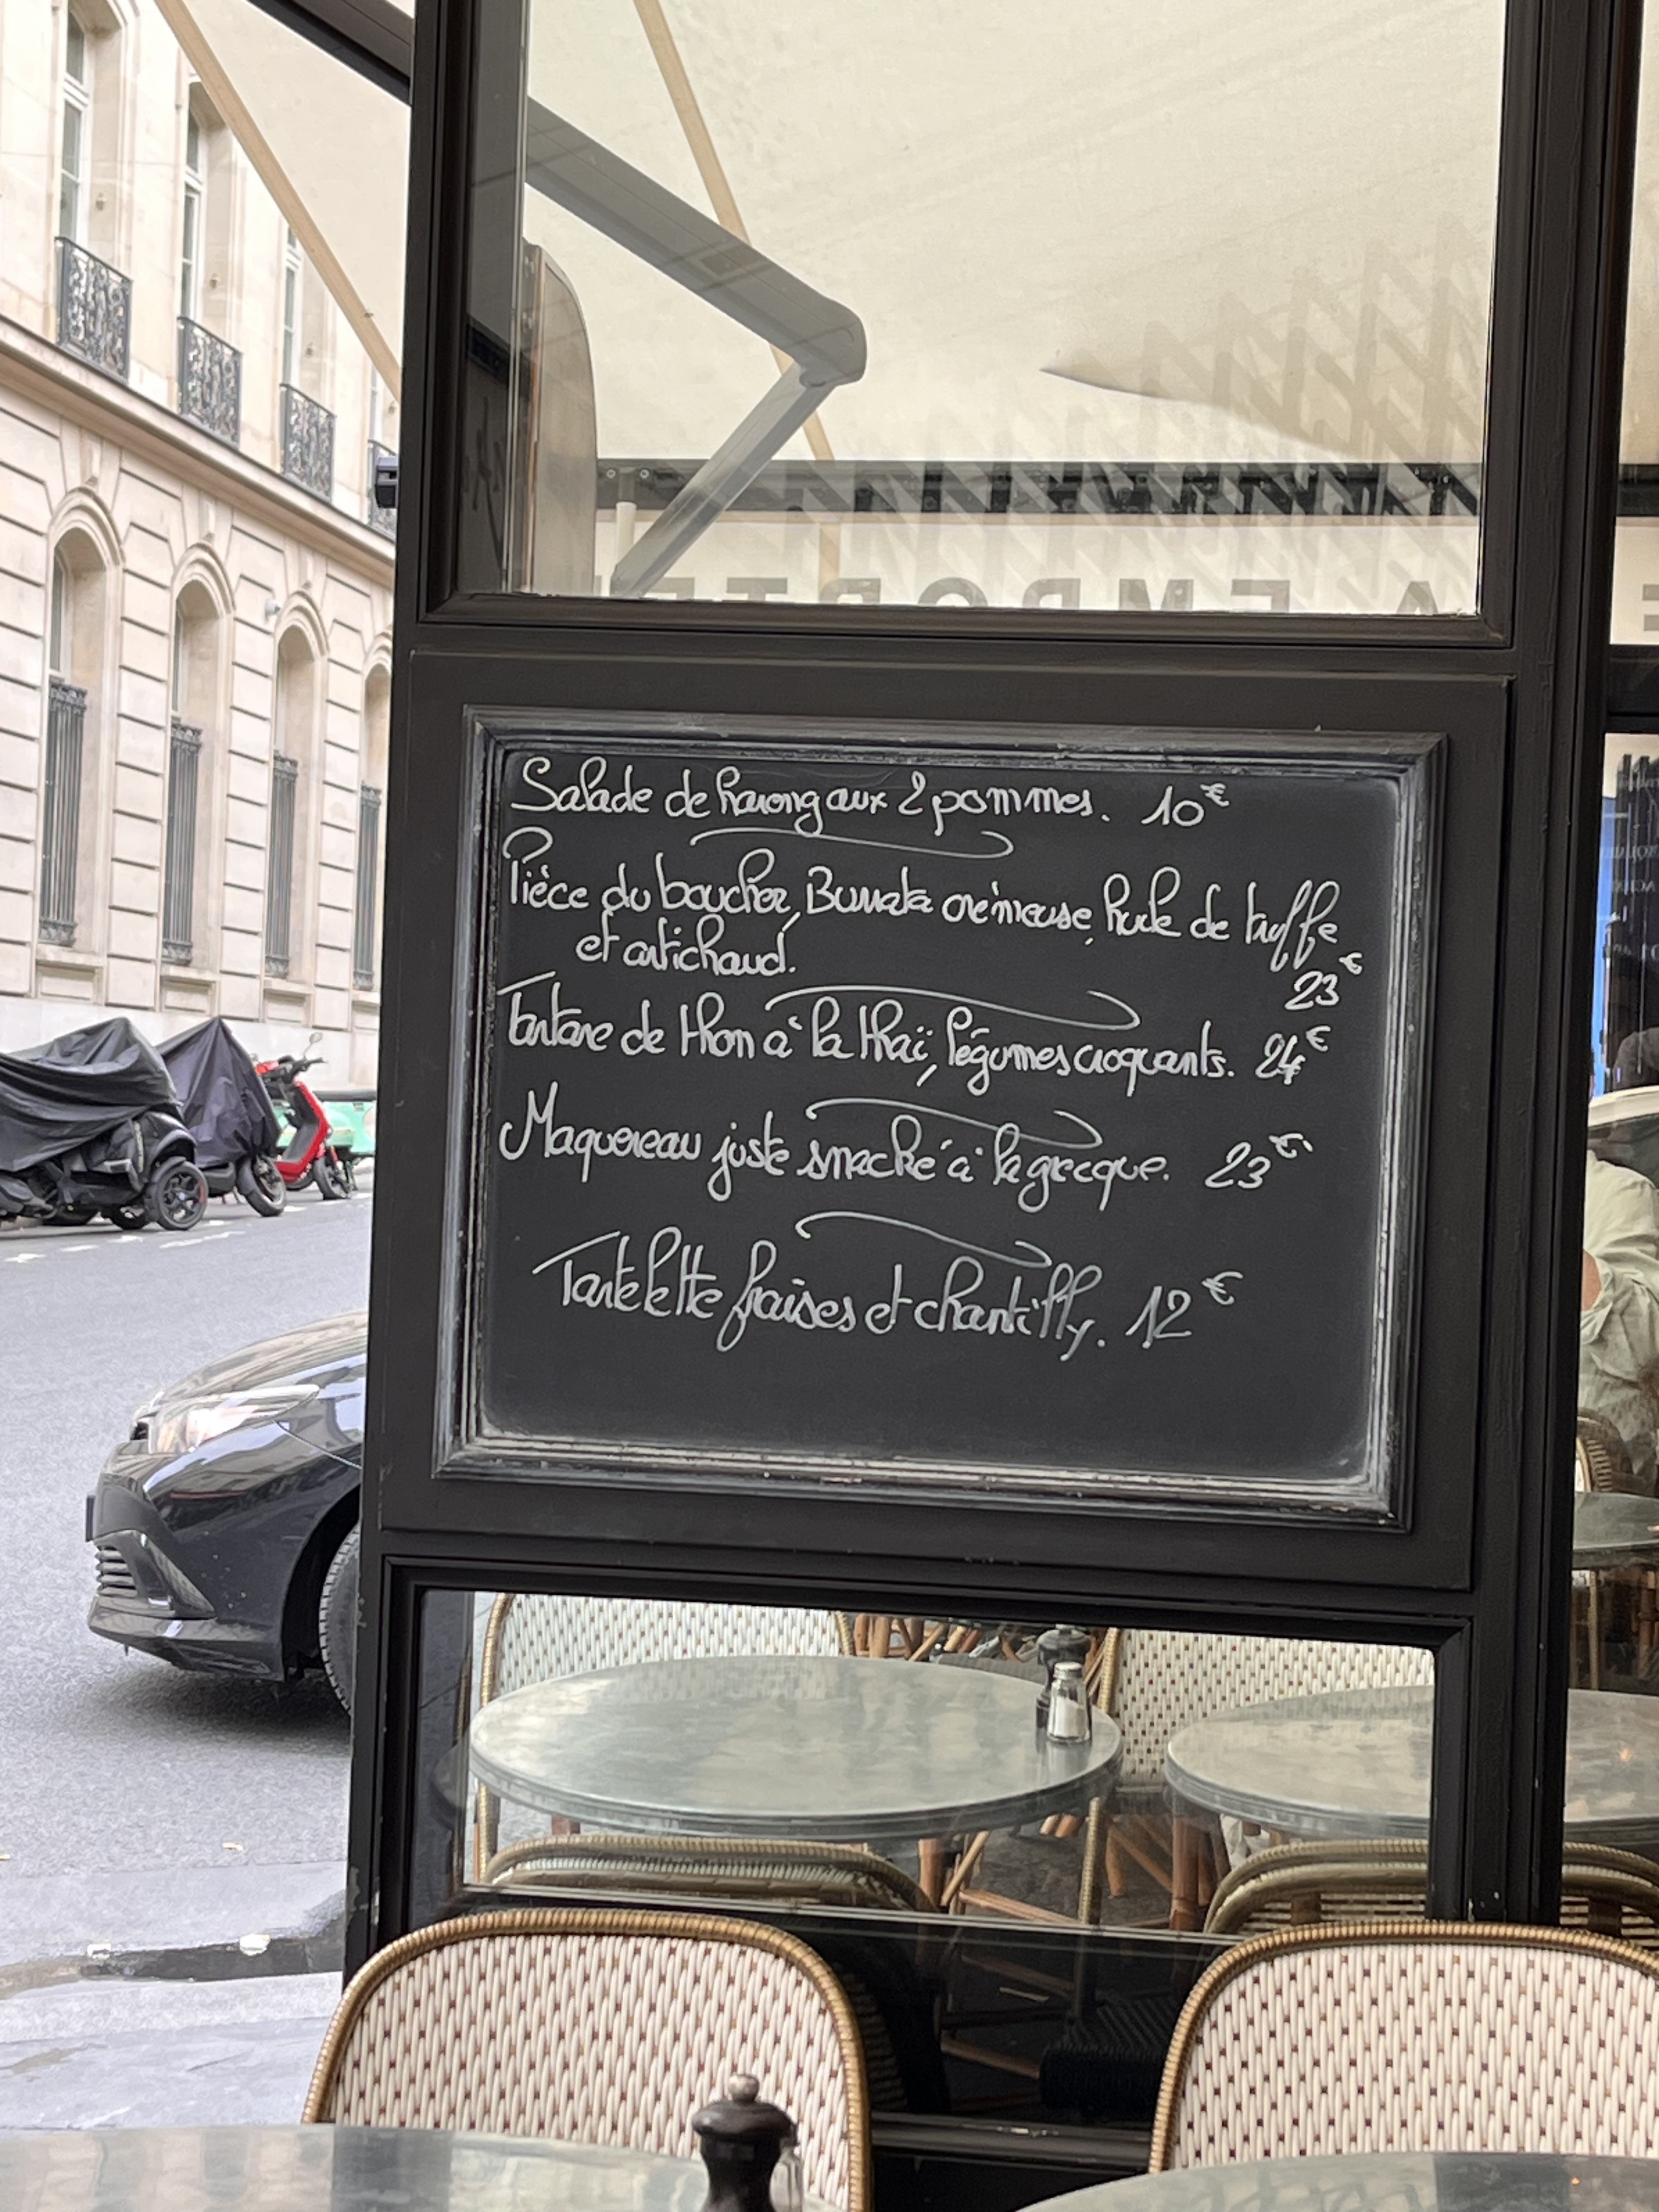 Salade de hareng aux 2 pommes. 10€
Pièce du boucher, Burrata crèmeuse, huile de truffe
et artichaud.
23€
Tartare de thon à la thaï, légumes croquants. 24€
Maquereau juste snacké à la grecque. 23€
Tartelette fraises et chantilly. 12€
A EMPORTER